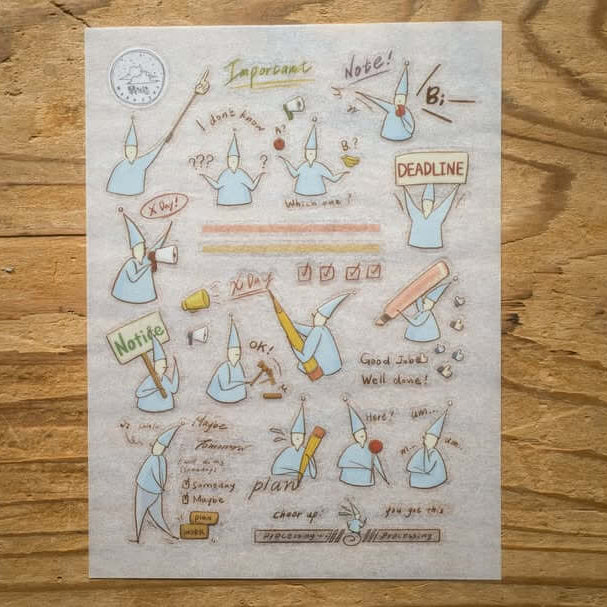 Important
Note!
B;—
I don't know
A?
B?
???
?
Which one?
DEADLINE
X Day!
X Day
Notice
OK!
Good Jobs
Well done!
Maybe
Tomorrow
Someday
Maybe
plan
work
plan
Here?
um...
m...
um...
cheer up!
you got this
processing
processing